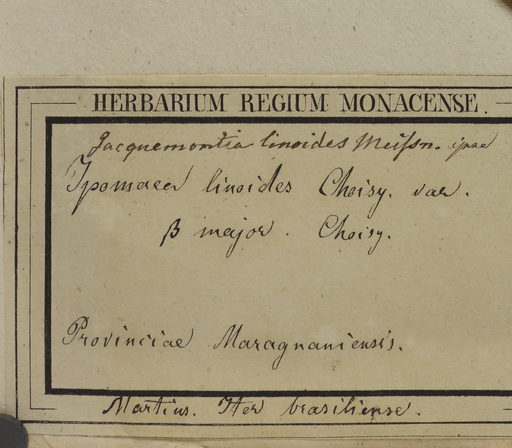 HERBARIUM REGIUM MONACENSE.
Jacquemontia linoides Meiſsn. ipse
Ipomaea linoides Choisy. var.
β major. Choisy.
Provinciae Maragnaniensis.
Martius. Iter brasiliense.